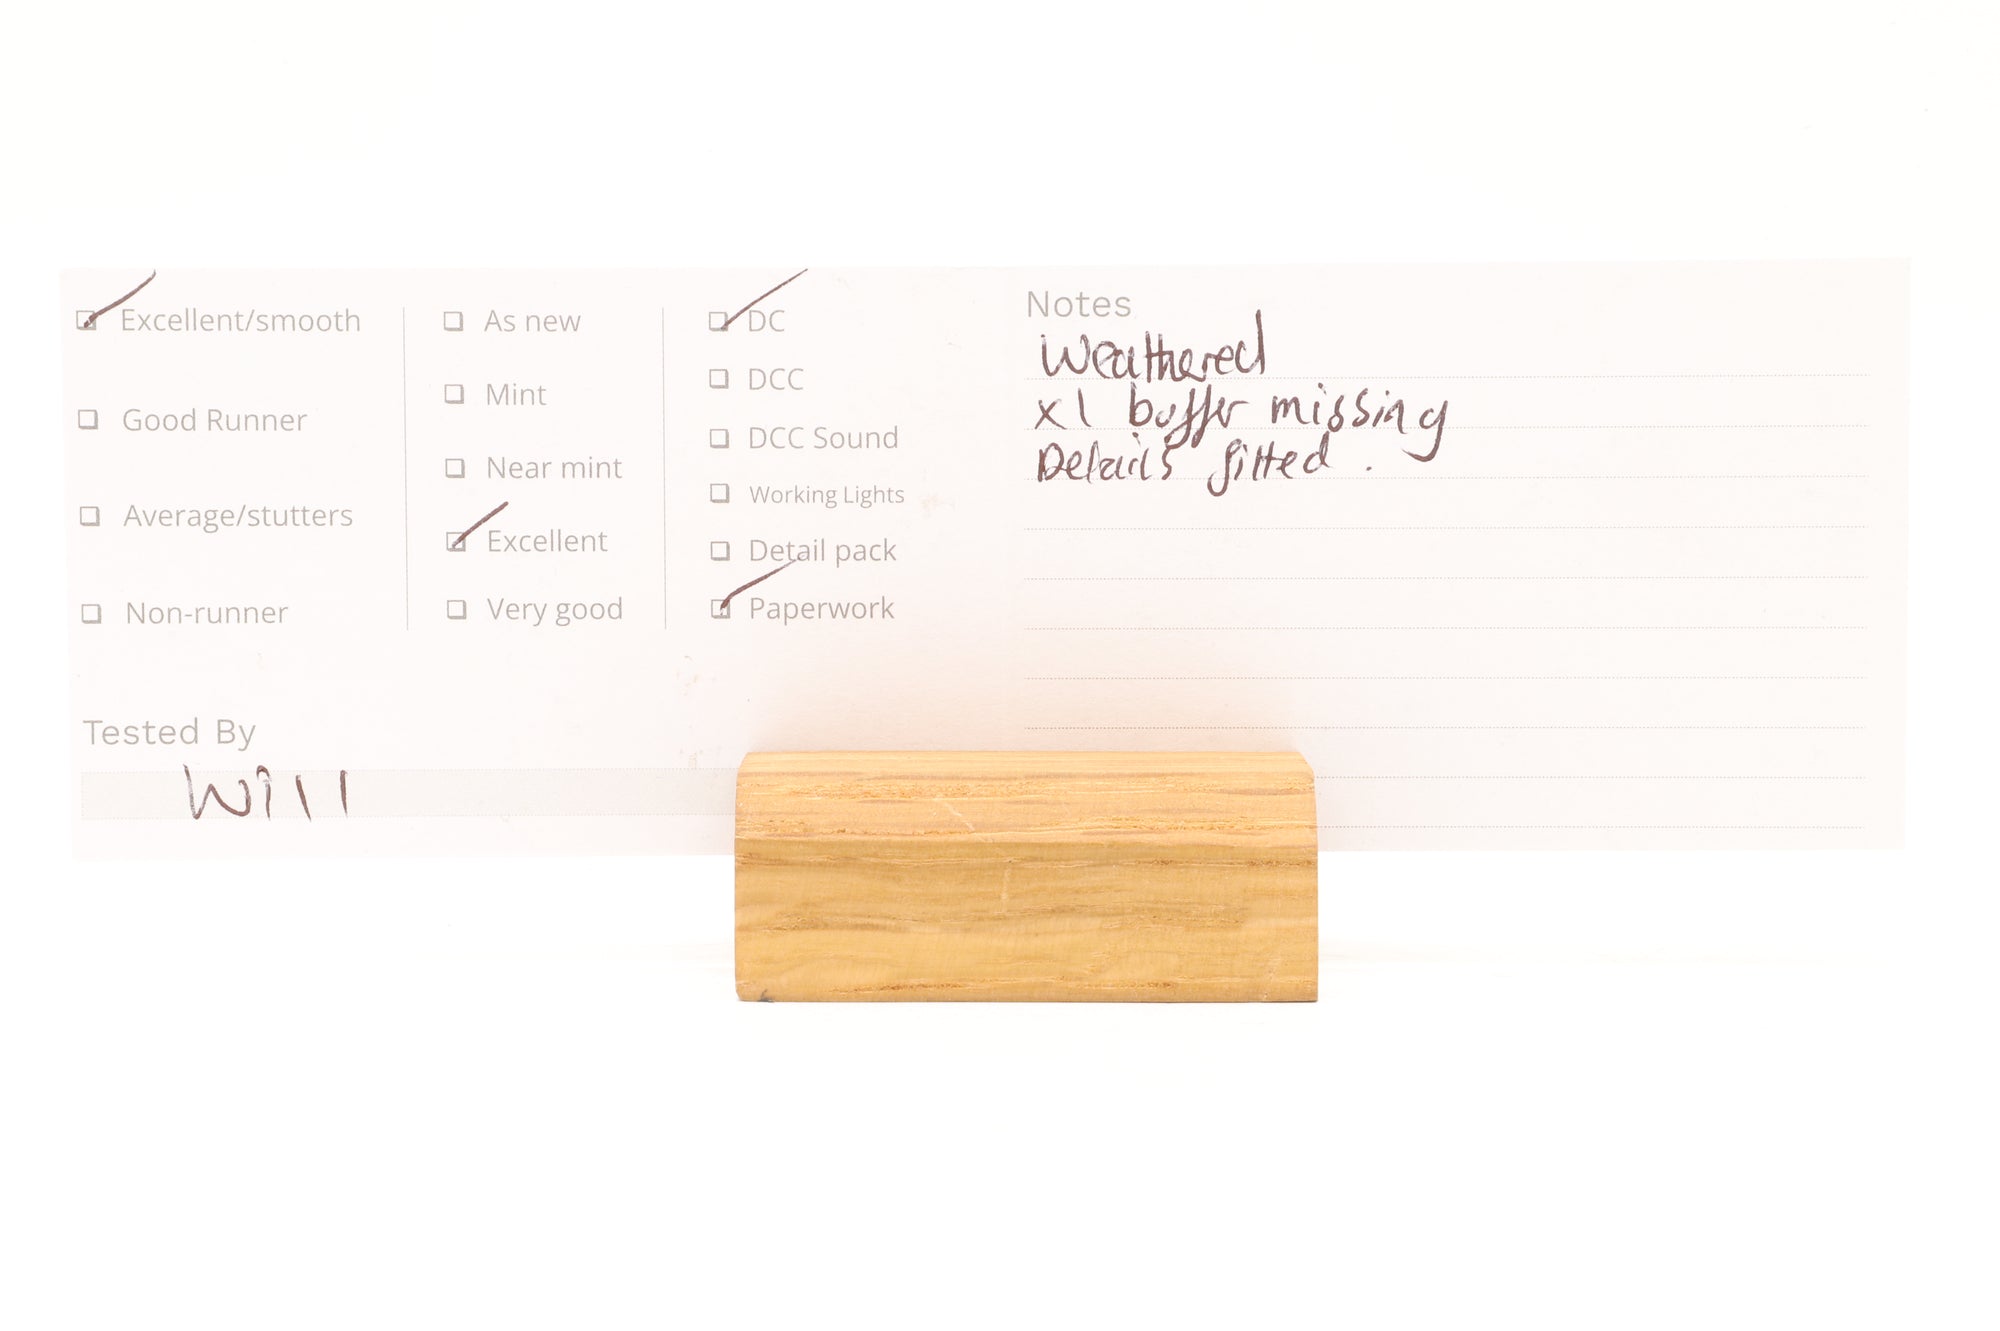 Excellent/smooth
Good Runner
Average/stutters
Non-runner
As new
Mint
Near mint
Excellent
Very good
DC
DCC
DCC Sound
Working Lights
Detail pack
Paperwork
Tested By
Will
Notes
Weathered
x1 buffer missing
Details fitted.